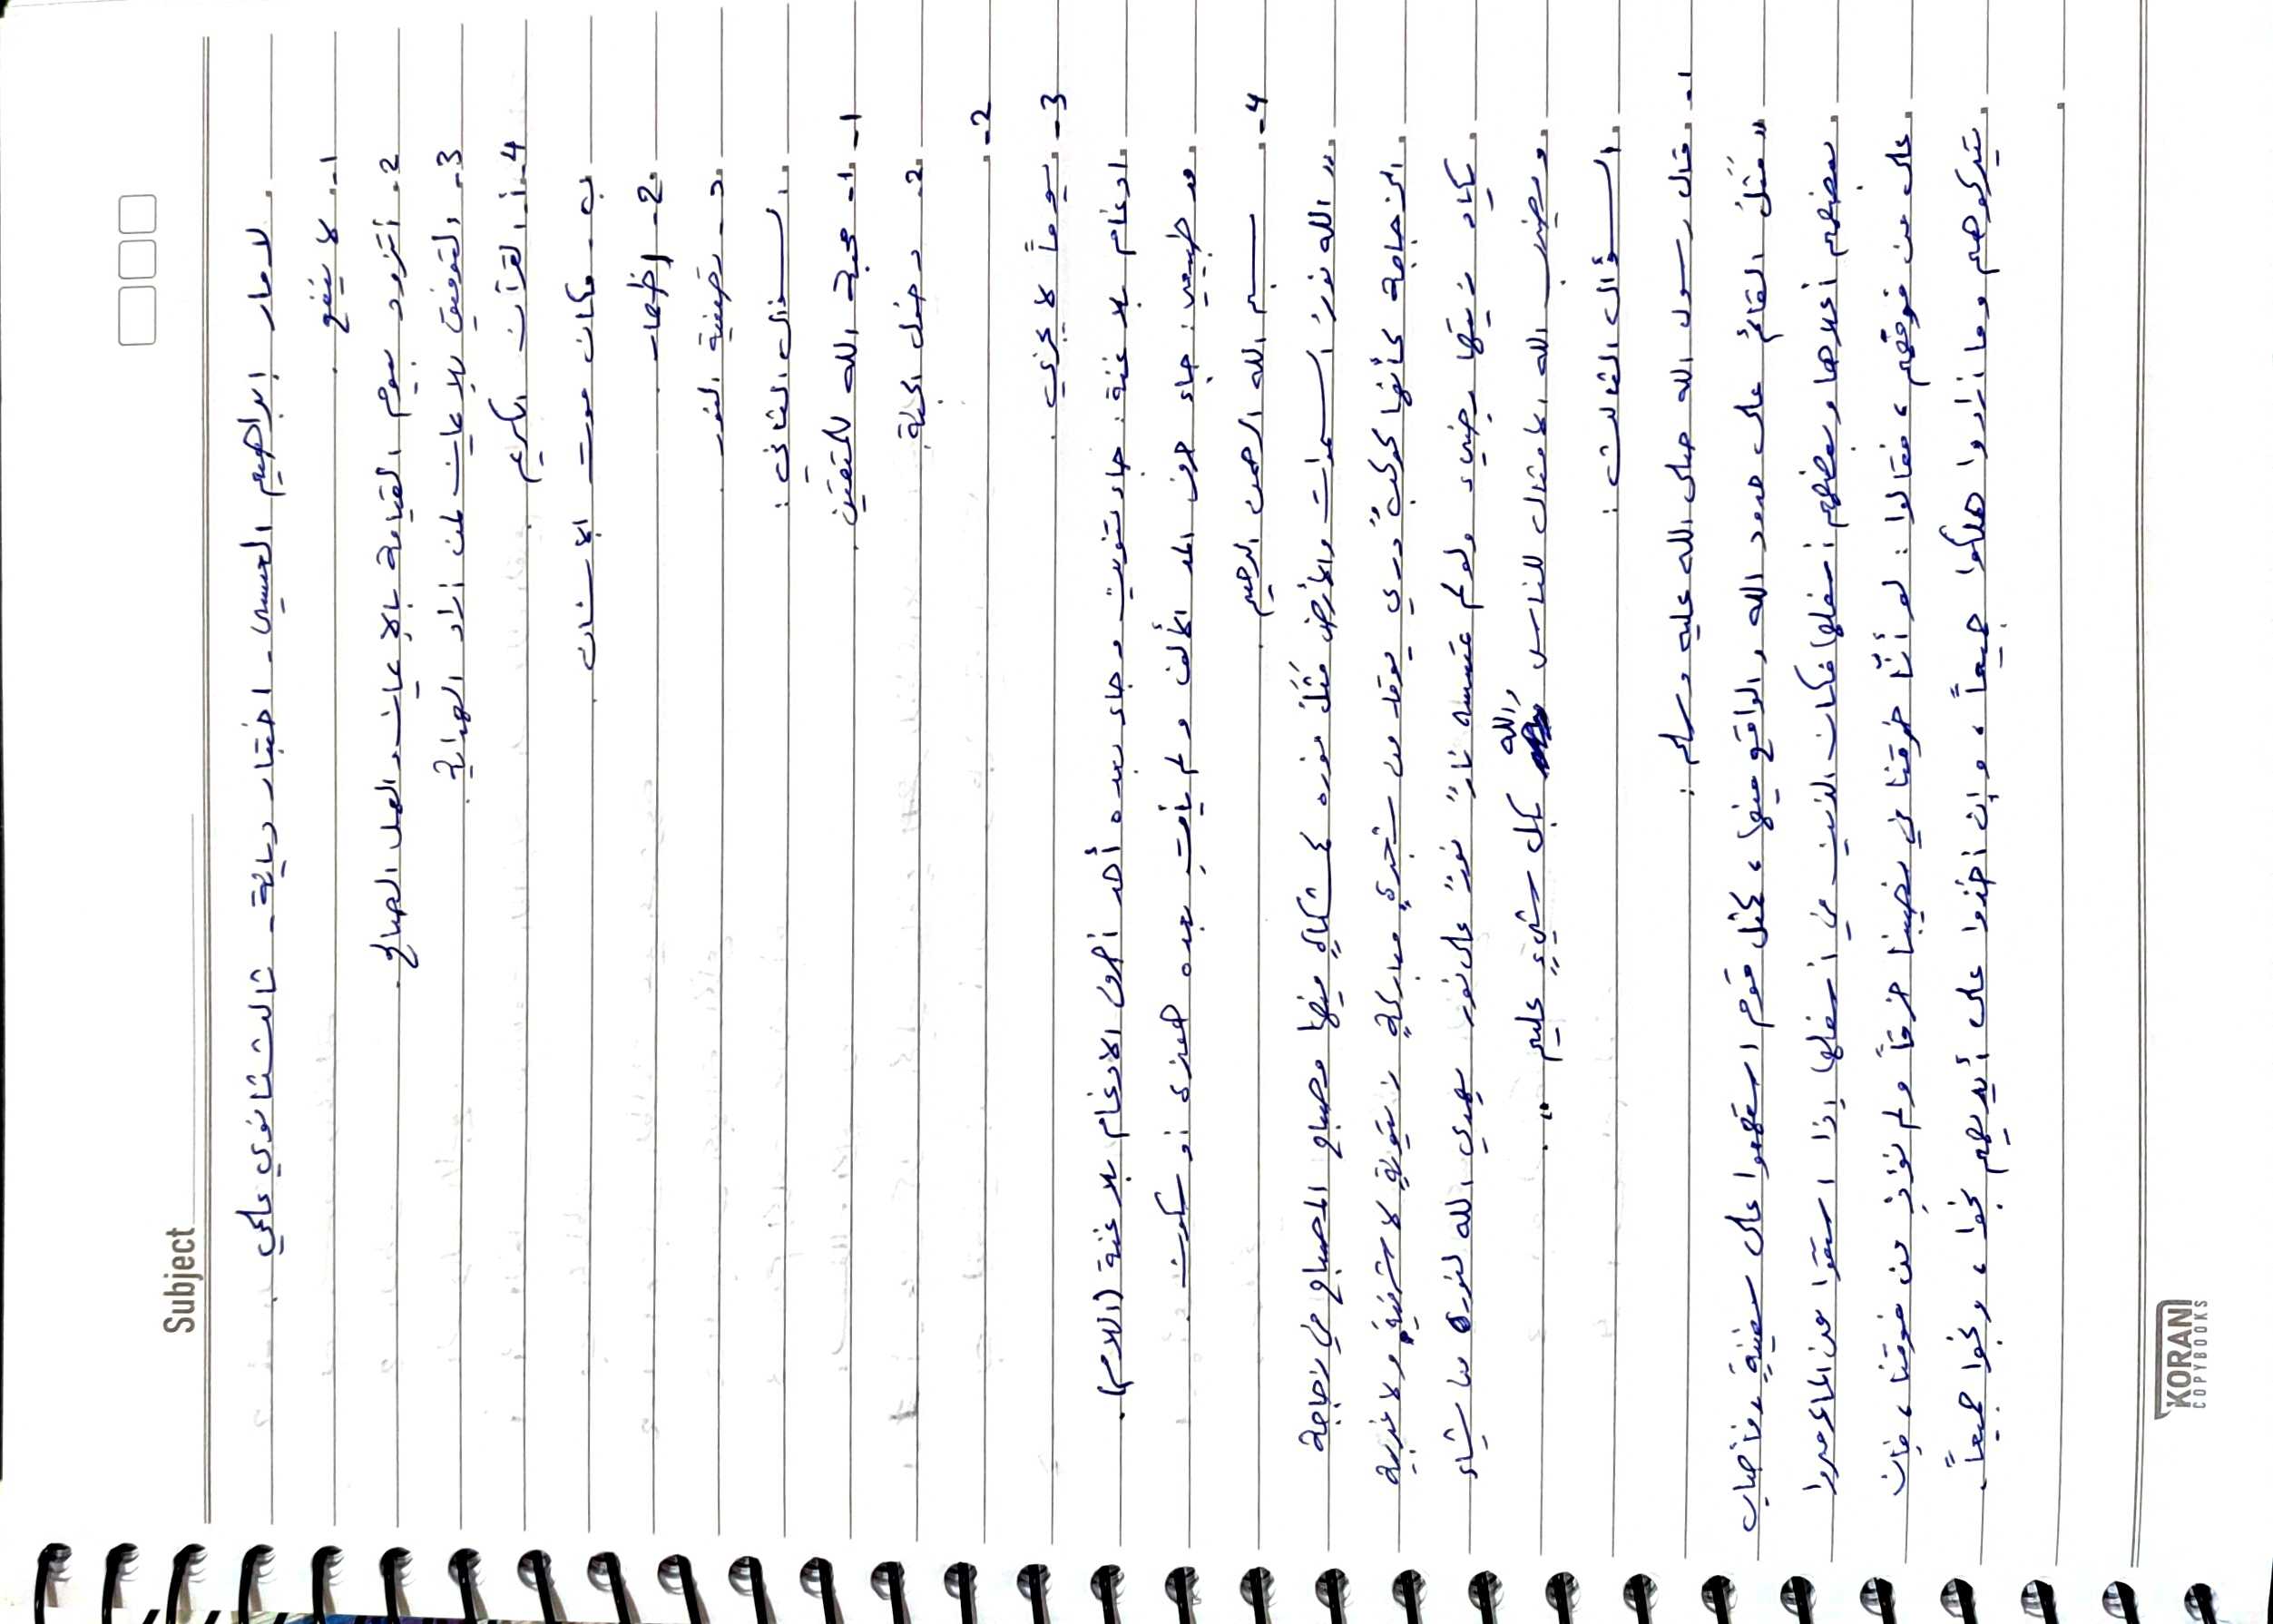 Subject
لامار ابراهيم العيسى - اختبار ديانة - ثالث ثانوي علمي
1- لا ينفع
2- أتزود ليوم القيامة بالإيمان والعمل الصالح.
3- التوفيق للإيمان لمن اراد الهداية
4- أ- القرآن الكريم
ب- مكان موت الإنسان
2- إظهار
د- تصفية النور
السؤال الثاني:
1- 1- محبة الله للمتقين
2- دخول الجنة
2-
3- يوماً لا يجزي
ادغام بلا غنة: جاء تنوين وجاء بعده أحد أحرف الادغام بلا غنة (اللام).
مد طبيعي: جاء حرف المد الألف ولم يأتِ بعده همزة أو سكون
4- بسم الله الرحمن الرحيم
"الله نورُ السموات والأرض مَثَلُ نوره كمشكاةٍ فيها مصباح المصباح في زجاجة
الزجاجة كأنها كوكبٌ دري يوقد من شجرةٍ مباركةٍ زيتونةٍ لا شرقيةٍ ولا غربية
يكاد زيتها يضيء ولو لم تمسسه نارٌ نورٌ على نور يهدي الله لنوره من يشاء
ويضرب الله الامثال للناس والله بكل شيءٍ عليم"
السؤال الثالث:
1- قال رسول الله صلى الله عليه وسلم:
"مَثَلُ القائم على حدود الله والواقع فيها، كمثل قوم استهموا على سفينةٍ فأصاب
بعضهم أعلاها وبعضهم أسفلها فكان الذين في أسفلها إذا استقوا من الماء مروا
على من فوقهم، فقالوا: لو أنّا خرقنا في نصيبنا خرقاً ولم نؤذِ من فوقنا، فإن
يتركوهم وما ارادوا هلكوا جميعاً، وإن اخذوا على أيديهم نجوا، ونجوا جميعاً.
KORANI
COPYBOOKS